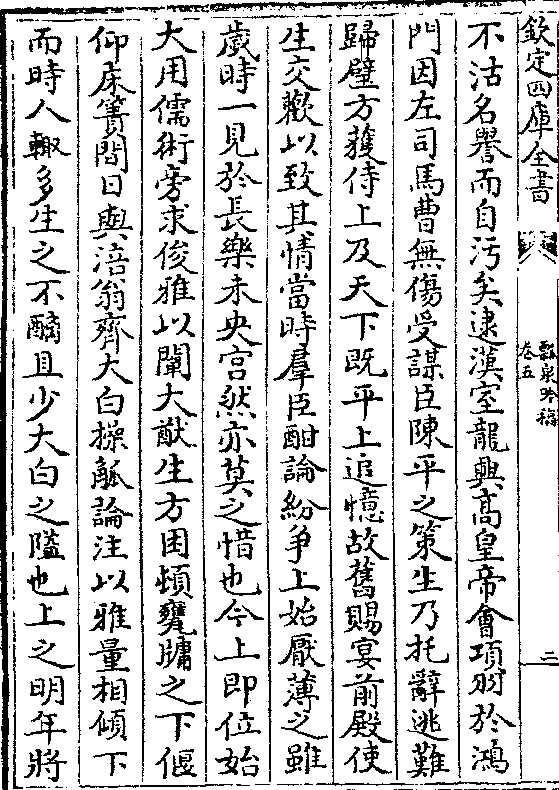 欽定四庫全書
瓢泉吟稿
卷五
二
不沽名譽而自污矣逮漢室龍興髙皇帝會項羽於鴻
門因左司馬曹無傷受謀臣陳平之策生乃托辭逃難
歸壁方獲侍上及天下既平上追憶故舊賜宴前殿使
生交歡以致其情當時羣臣酣論紛争上始厭薄之雖
歲時一見於長樂未央宮然亦莫之惜也今上即位始
大用儒術旁求俊雅以闡大猷生方困頓甕牖之下偃
仰床簀間日與涪翁齊大白操觚論注以雅量相傾下
而時人輙多生之不酶且少大白之隘也上之明年將